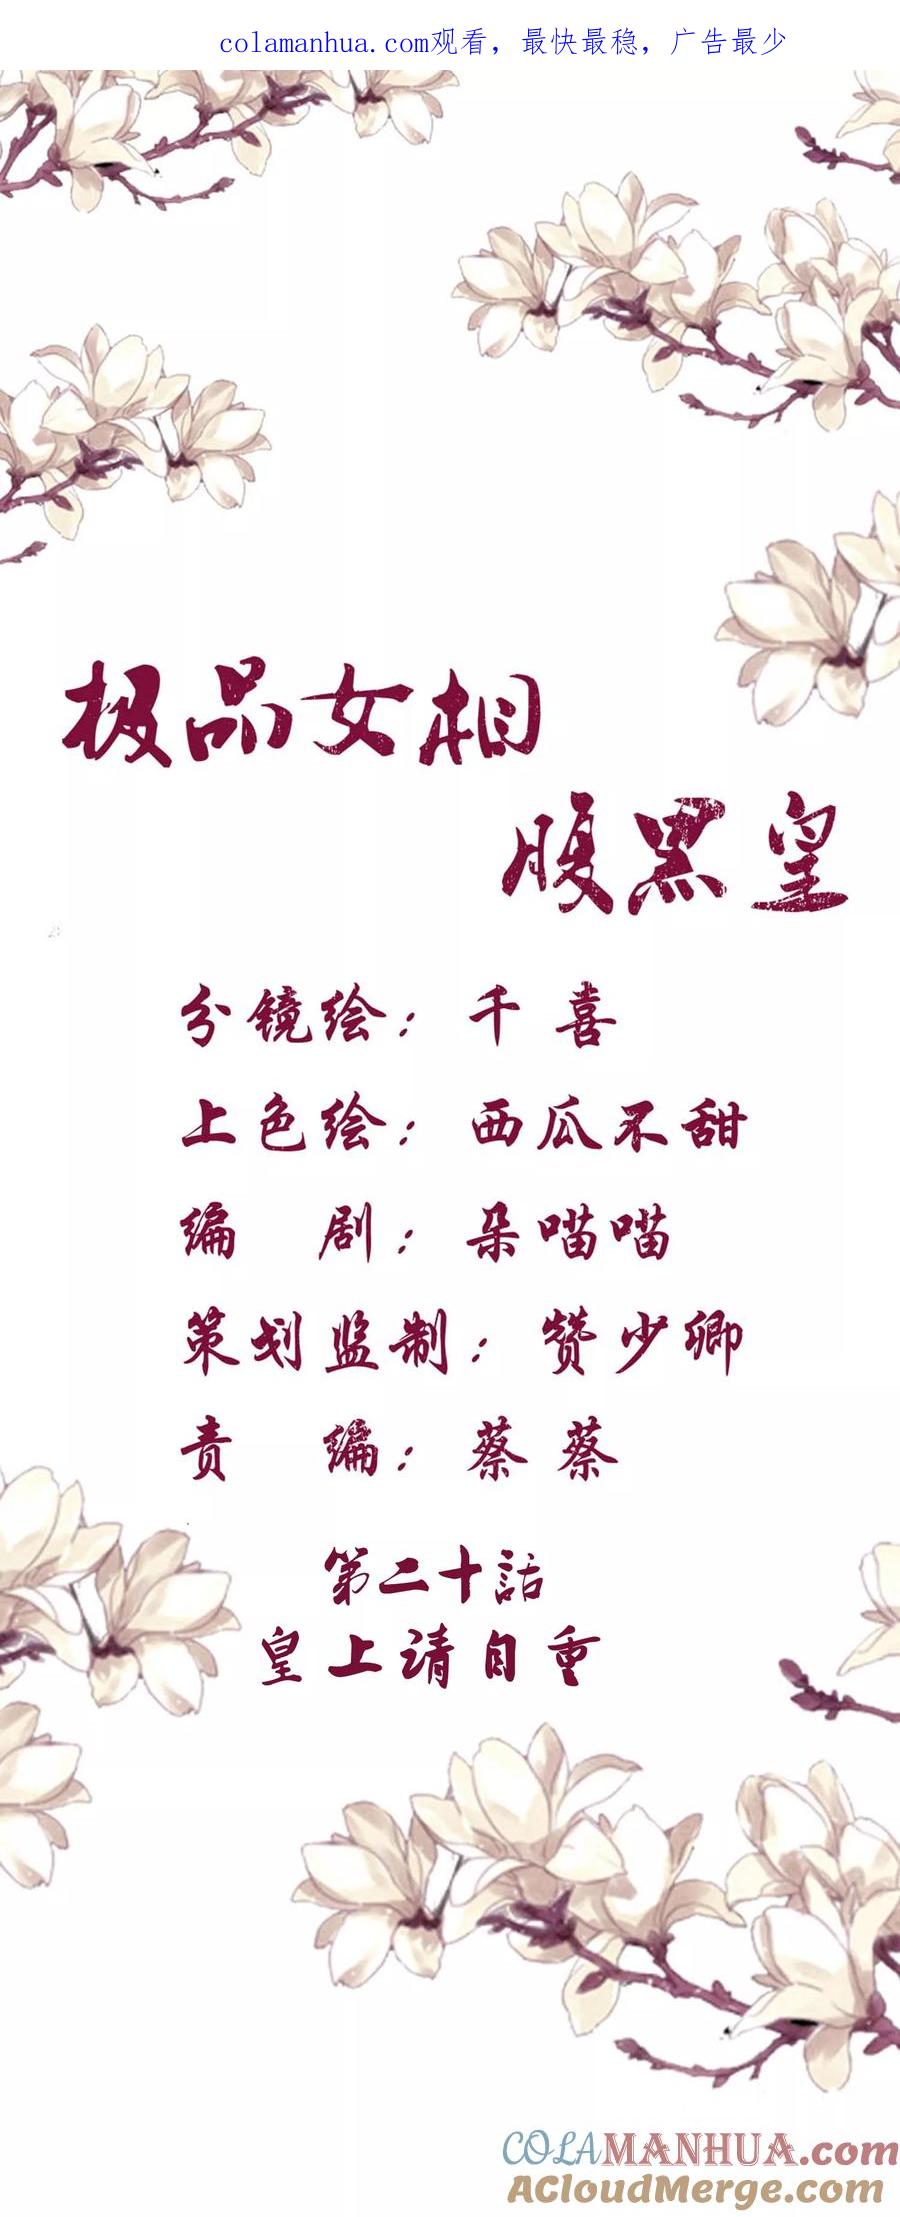 colamanhua.com观看，最快最稳，广告最少
极品女相
腹黑皇
分镜绘：千喜
上色绘：西瓜不甜
编剧：朵喵喵
策划监制：赞少卿
责编：蔡蔡
第二十話
皇上请自重
COLAMANHUA.com
ACloudMerge.com